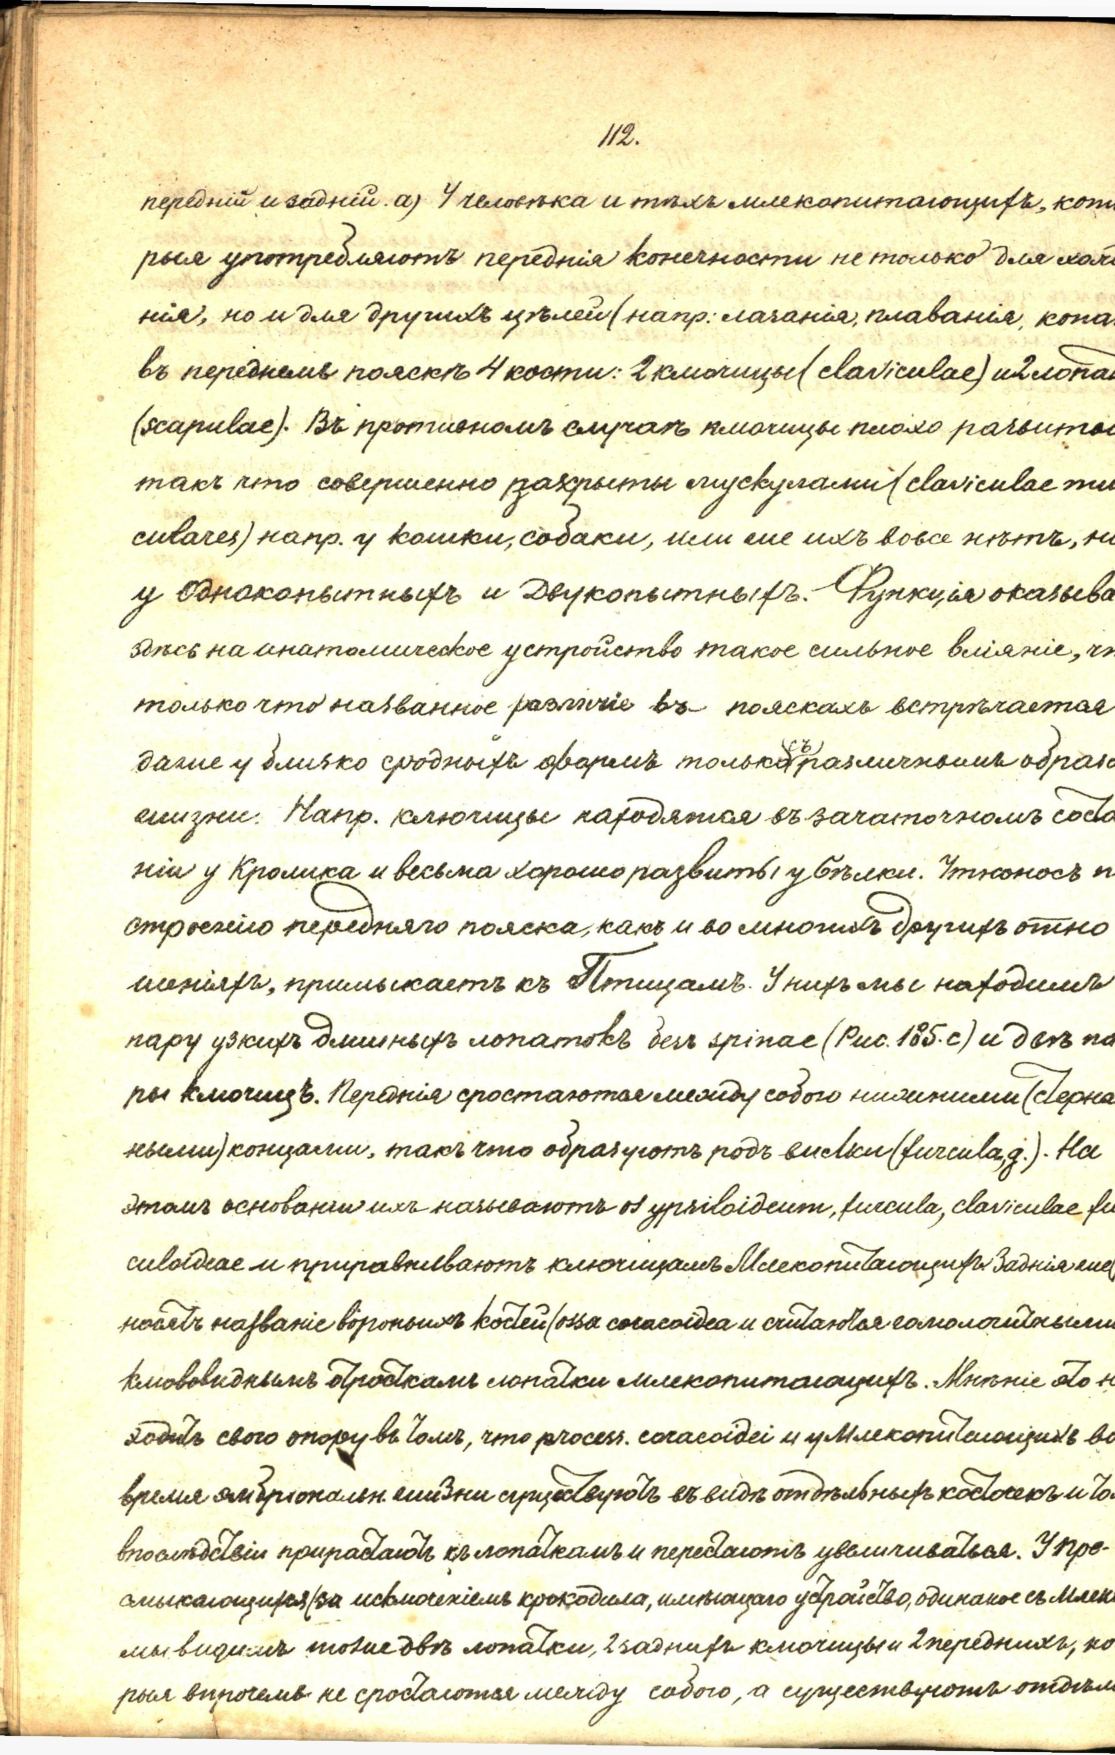 112.
передній и задній. а) У человѣка и тѣхъ млекопитающихъ, кото
рыя употребляютъ переднія конечности не только для хожде
нія, но и для другихъ цѣлей (напр: лазанія, плаванія, копа
въ переднемъ пояскѣ 4 кости: 2 ключицы (claviculae) и 2 лопат
(scapulae). Въ противномъ случаѣ ключицы плохо развиты
такъ что совершенно закрыты мускулами (claviculae mu
culares) напр. у кошки, собаки, или же ихъ вовсе нѣтъ, на
у Однокопытныхъ и Двукопытныхъ. Функція оказыва
здѣсь на анатомическое устройство такое сильное вліяніе, чт
только что названное различіе въ пояскахъ встрѣчается
даже у близко сродныхъ формъ только съ различнымъ образо
жизни. Напр. ключицы находятся въ зачаточномъ состо
ніи у Кролика и весьма хорошо развиты у Бѣлки. Утконосъ п
строенію передняго пояска, какъ и во многихъ другихъ отно
шеніяхъ, примыкаетъ къ Птицамъ. У нихъ мы находимъ
пару узкихъ длинныхъ лопатокъ безъ spinae (Рис. 185. c) и двѣ па
ры ключицъ. Переднія сростаются между собою нижними (стерна
ными) концами, такъ что образуютъ родъ вилки (furcula, g.). На
этомъ основаніи ихъ называютъ os ypsiloideum, furcula, claviculae fu
culoideae и приравниваютъ ключицамъ Млекопитающихъ. Заднія же
носятъ названіе вороньихъ костей (ossa coracoidea и считаются гомологичными
клювовиднымъ отросткамъ лопатки млекопитающихъ. Мнѣніе это н
ходитъ свою опору въ томъ, что process. coracoidei и у Млекопитающихъ во
время эмбріональн. жизни существуютъ въ видѣ отдѣльныхъ косточекъ и то
впослѣдствіи прирастаютъ къ лопаткамъ и перестаютъ увеличиваться. У Пре-
смыкающихся (за исключеніемъ крокодила, имѣющаго устройство, одинакое съ Млек
мы видимъ тоже двѣ лопатки, 2 заднихъ ключицы и 2 переднихъ, ко
рыя впрочемъ не сростаются между собою, а существуютъ отдѣль